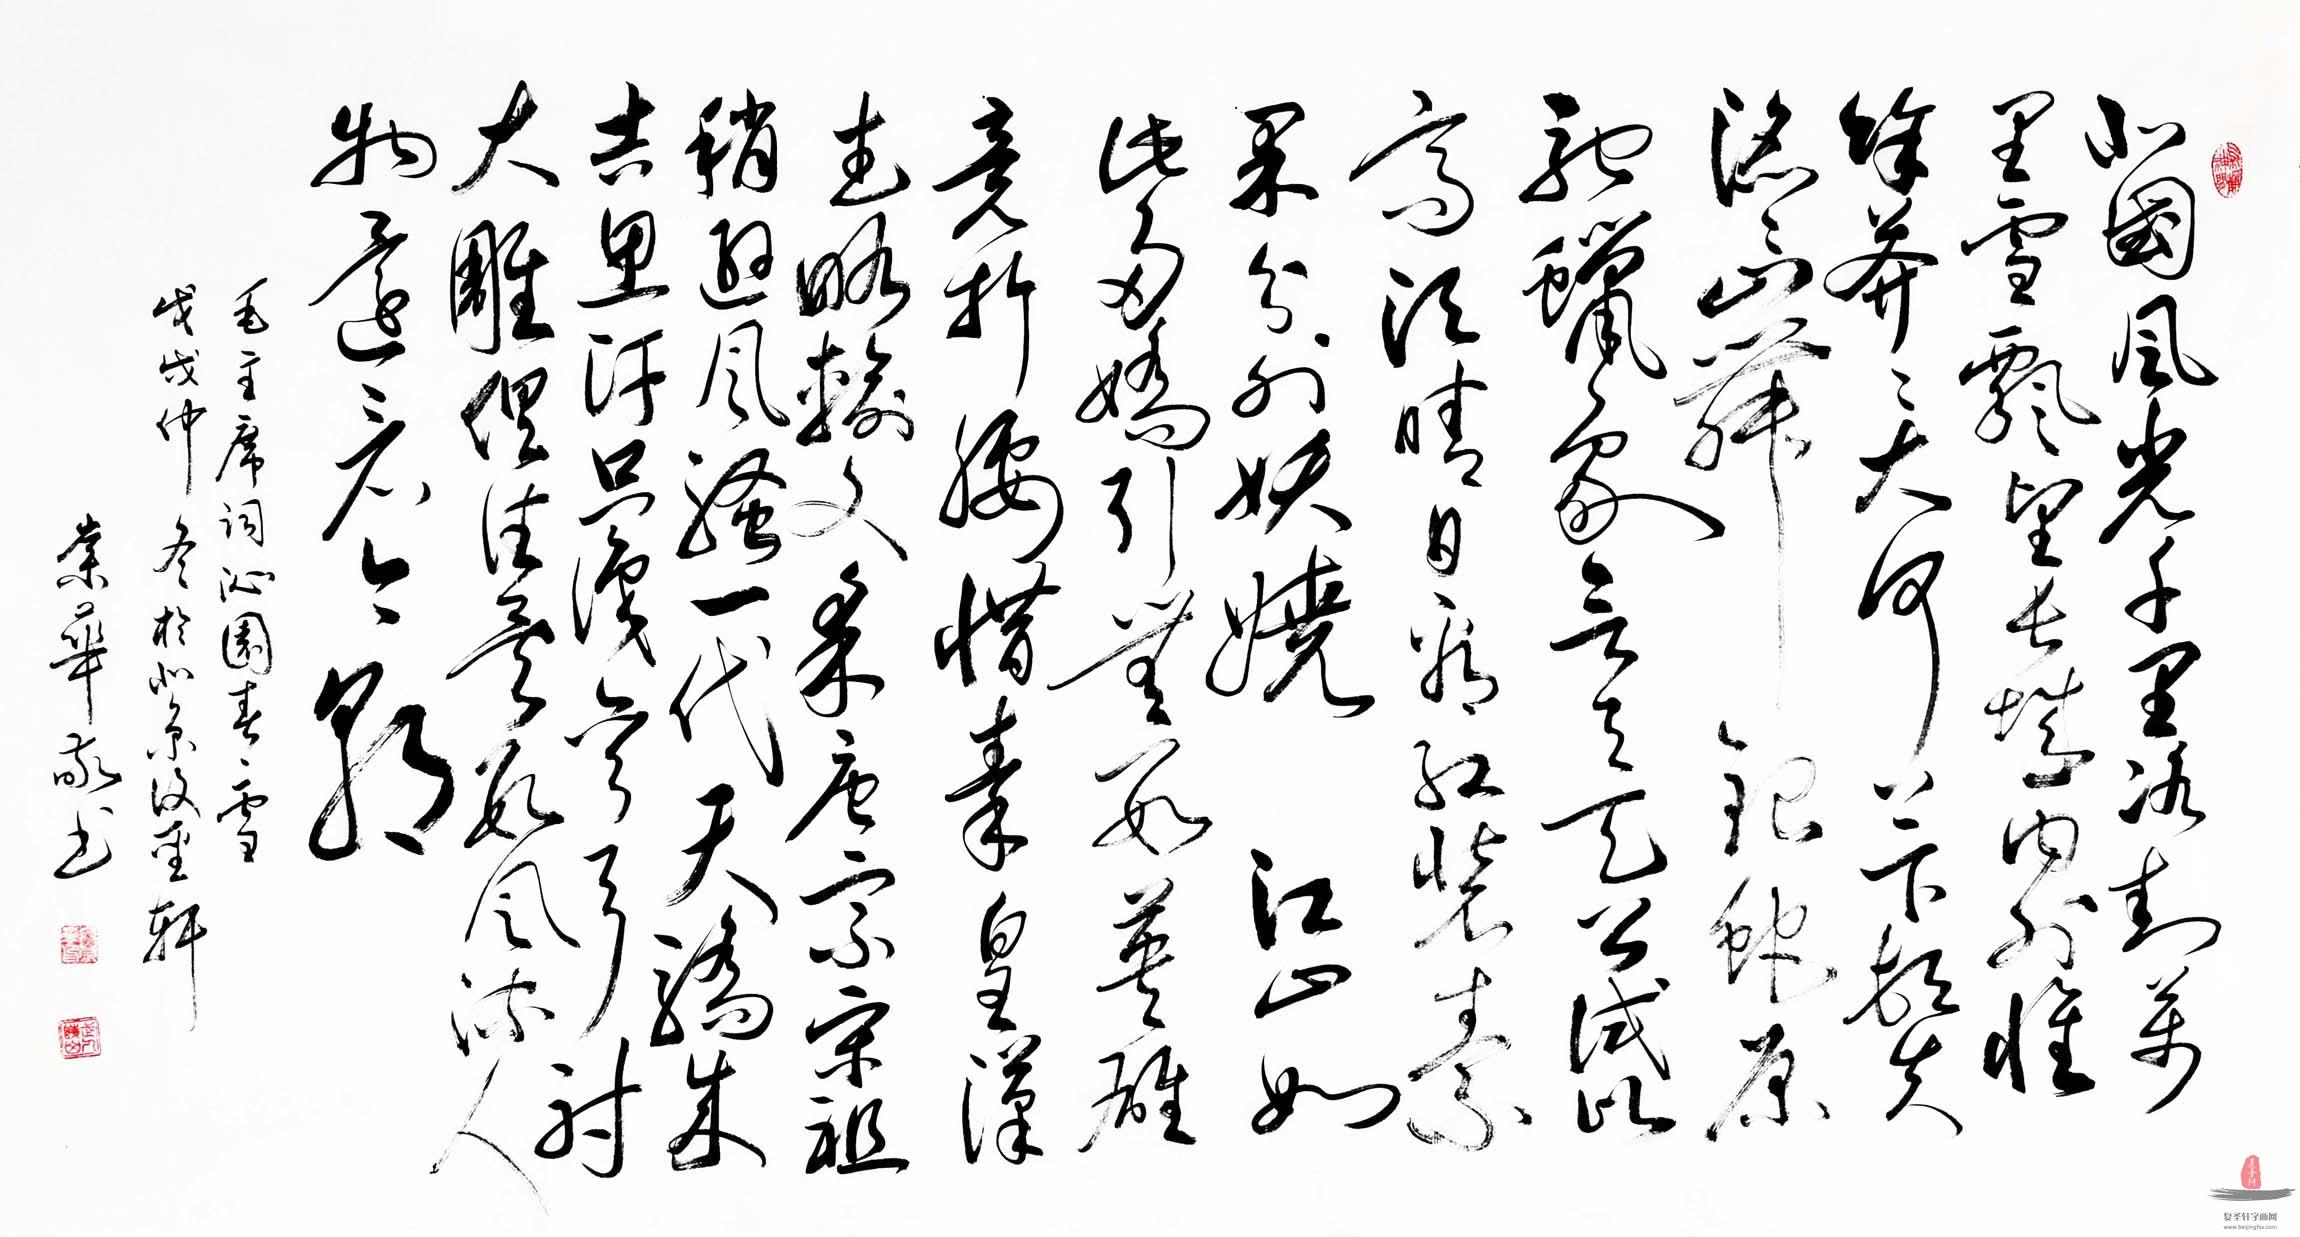 北國風光千里冰封萬
里雪飄望長城內外惟
餘莽〻大河上下頓失
滔〻山舞銀蛇原
馳蠟象欲与天公試比
高須晴日看紅裝素
裹分外妖嬈江山如
此多嬌引無數英雄
竞折腰惜秦皇漢
武略輸文采唐宗宋祖
稍遜風騷一代天驕成
吉思汗只識彎弓射
大雕俱往矣數風流人
物還看今朝
毛主席詞沁園春·雪
戊戌仲冬於北京復聖軒
崇華敬书
复圣轩字画网
www.beijingfsx.com